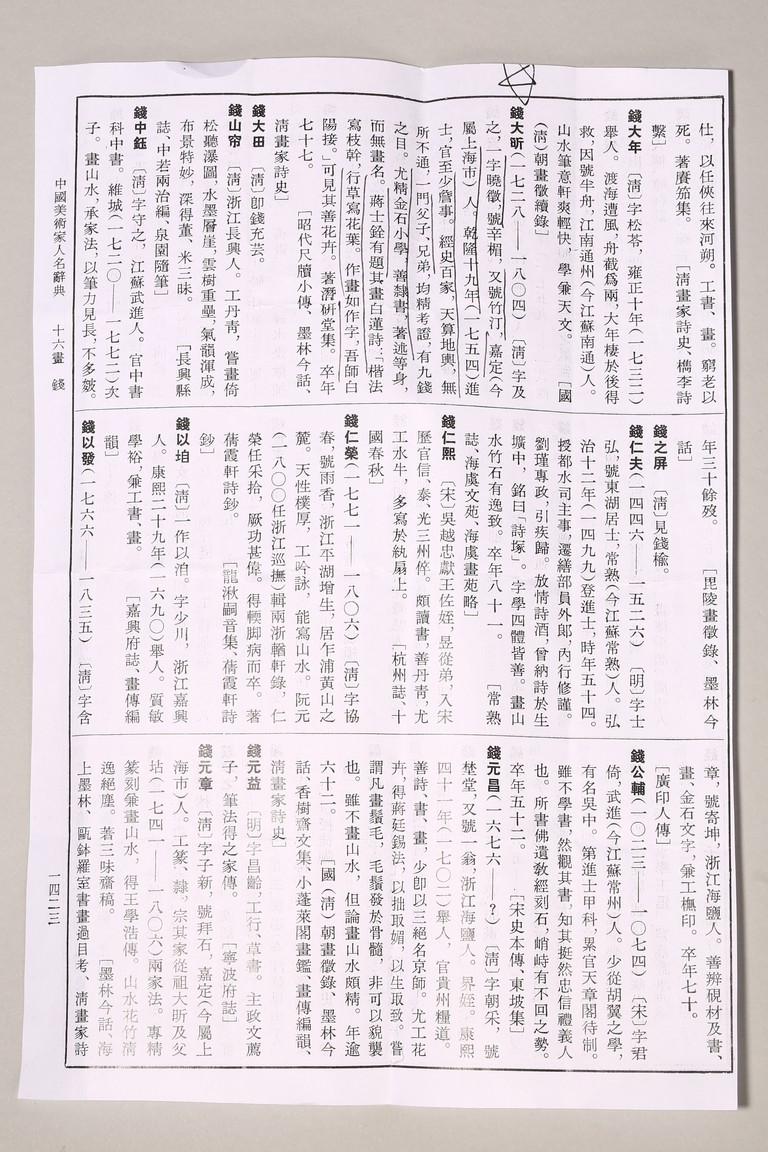 杜，以任俠往來河朔。工書、畫。窮老以
死。著賡笳集。〔淸畫家詩史、檇李詩
繫〕
錢大年〔淸〕字松苓，雍正十年（一七三二）
舉人。渡海遭風，舟截爲兩，大年棲於後得
救，因號半舟，江南通州（今江蘇南通）人。
山水筆意軒爽輕快，學兼天文。〔國
（淸）朝畫徵續錄〕
錢大昕（一七二八——一八〇四）〔淸〕字及
之，一字曉徵，號辛楣，又號竹汀，嘉定（今
屬上海市）人。乾隆十九年（一七五四）進
士，官至少詹事。經史百家，天算地輿，無
所不通，一門父子、兄弟，均精考證，有九錢
之目。尤精金石小學，善隸書，著述等身，
而無畫名。蔣士銓有題其畫白蓮詩：「楷法
寫枝幹，行草寫花葉。作畫如作字，吾師白
陽接。」可見其善花卉。著潛硏堂集。卒年
七十七。〔昭代尺牘小傳、墨林今話、
淸畫家詩史〕
錢大田〔淸〕卽錢充芸。
錢山帘〔淸〕浙江長興人。工丹靑，嘗畫倚
松聽瀑圖，水墨層崖，雲樹重疊，氣韻渾成，
布景特妙，深得董、米三昧。〔長興縣
誌、中若兩治編、泉園隨筆〕
錢中鈺〔淸〕字守之，江蘇武進人。官中書
科中書。維城（一七二〇——一七七二）次
子。畫山水，承家法，以筆力見長，不多皴。
年三十餘歿。〔毘陵畫徵錄、墨林今
話〕
錢之屛〔淸〕見錢楡。
錢仁夫（一四四六——一五二六）〔明〕字士
弘，號東湖居士，常熟（今江蘇常熟）人。弘
治十二年（一四九九）登進士，時年五十四。
授都水司主事，遷繕部員外郎，內行修謹。
劉瑾專政，引疾歸。放情詩酒，曾納詩於生
壙中，銘曰「詩塚」。字學四體皆善。畫山
水竹石有逸致。卒年八十一。〔常熟
誌、海虞文苑、海虞畫苑略〕
錢仁熙〔宋〕吳越忠獻王佐姪，昱從弟，入宋
歷官信、泰、光三州倅。頗讀書，善丹靑，尤
工水牛，多寫於紈扇上。〔杭州誌、十
國春秋〕
錢仁榮（一七七一——一八〇六）〔淸〕字協
春，號雨香，浙江平湖增生，居乍浦黃山之
麓。天性樸厚，工吟詠，能寫山水。阮元
（一八〇〇任浙江巡撫）輯兩浙輶軒錄，仁
榮任采拾，厥功甚偉。得輭脚病而卒。著
蒨霞軒詩鈔。〔龍湫嗣音集、蒨霞軒詩
鈔〕
錢以垍〔淸〕一作以洎。字少川，浙江嘉興
人。康熙二十九年（一六九〇）舉人。質敏
學裕，兼工書、畫。〔嘉興府誌、畫傳編
韻〕
錢以發（一七六六——一八三五）〔淸〕字含
章，號寄坤，浙江海鹽人。善辨硯材及書、
畫、金石文字，兼工橅印。卒年七十。
〔廣印人傳〕
錢公輔（一〇二三——一〇七四）〔宋〕字君
倚，武進（今江蘇常州）人。少從胡翼之學，
有名吳中。第進士甲科，累官天章閣待制。
雖不學書，然觀其書，知其挺然忠信禮義人
也。所書佛遺敎經刻石，峭峙有不回之勢。
卒年五十二。〔宋史本傳、東坡集〕
錢元昌（一六七六——？）〔淸〕字朝采，號
埜堂，又號一翁，浙江海鹽人。界姪。康熙
四十一年（一七〇二）舉人，官貴州糧道。
善詩、書、畫，少卽以三絕名京師。尤工花
卉，得蔣廷錫法，以拙取媚，以生取致。嘗
謂凡畫鬚毛，毛鬚發於骨髓，非可以貌襲
也。雖不畫山水，但論畫山水頗精。年逾
六十二。〔國（淸）朝畫徵錄、墨林今
話、香樹齋文集、小蓬萊閣畫鑑、畫傳編韻、
淸畫家詩史〕
錢元益〔明〕字昌齡，工行、草書。主政文薦
子，筆法得之家傳。〔寧波府誌〕
錢元章〔淸〕字子新，號拜石，嘉定（今屬上
海市）人。工篆、隸，宗其家從祖大昕及父
坫（一七四一——一八〇六）兩家法。專精
篆刻兼畫山水，得王學浩傳。山水花竹淸
逸絕塵。著三味齋稿。〔墨林今話、海
上墨林、甌鉢羅室書畫過目考、淸畫家詩
中國美術家人名辭典　十六畫　錢
一四二三